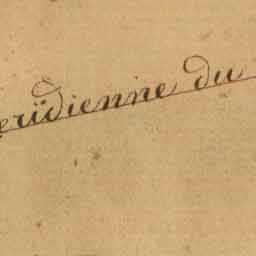 eridienne du